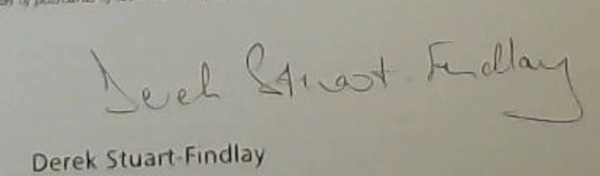 Derek Stuart-Findlay
Derek Stuart-Findlay